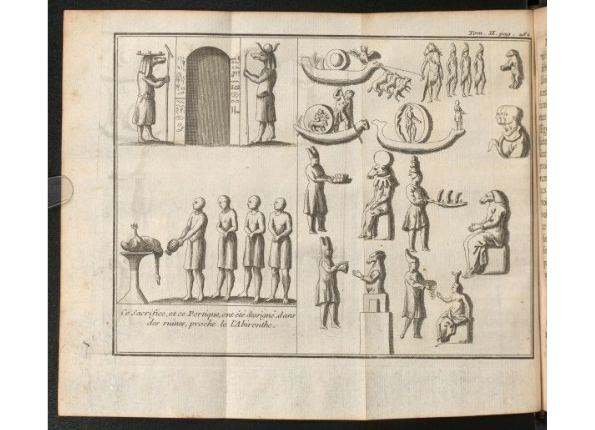 Tom. II. pag.
Ce Sacrifice, et ce Portique, ont été designé, dans
des ruines, proche le LAbirenthe.